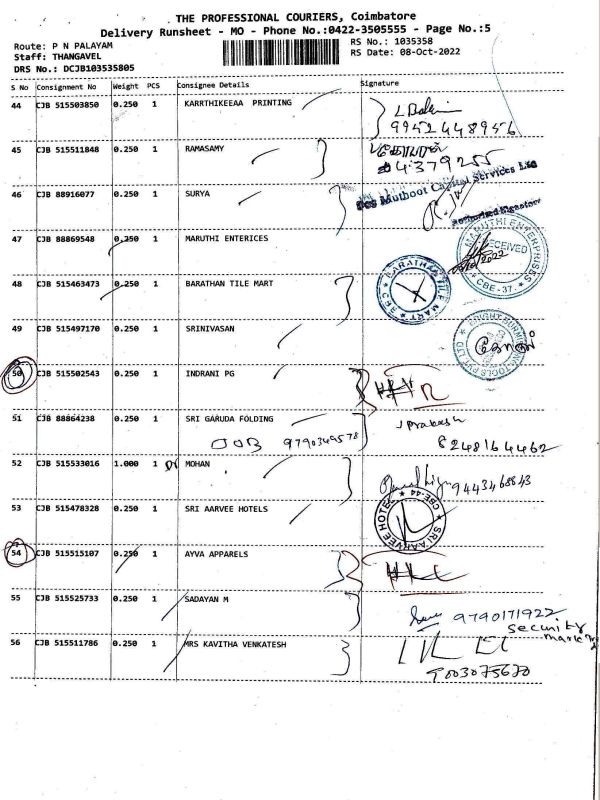 THE PROFESSIONAL COURIERS, Coimbatore
Delivery Runsheet - MO - Phone No.:0422-3505555 - Page No.:5
Route: P N PALAYAM
RS No.: 1035358
Staff: THANGAVEL
RS Date: 08-Oct-2022
DRS No.: DCJB103535805
S No Consignment No Weight PCS Consignee Details Signature
44 CJB 515503850 0.250 1 KARRTHIKEEAA PRINTING
9952448956
45 CJB 515511848 0.250 1 RAMASAMY
46 CJB 88916077 0.250 1 SURYA
Muthoot Capital Services Ltd
Authorised Signatory
47 CJB 88869548 0.250 1 MARUTHI ENTERICES
MARUTHI ENTERPRISES RECEIVED CBE-37.
48 CJB 515463473 0.250 1 BARATHAN TILE MART
BARATHAN TILE MART
49 CJB 515497170 0.250 1 SRINIVASAN
50 CJB 515502543 0.250 1 INDRANI PG
51 CJB 88864238 0.250 1 SRI GARUDA FOLDING
J Prakash
9790349578
8248164462
52 CJB 515533016 1.000 1 MOHAN
9443468843
53 CJB 515478328 0.250 1 SRI AARVEE HOTELS
SRI AARVEE HOTEL CBE-44
54 CJB 515515107 0.250 1 AYVA APPARELS
55 CJB 515525733 0.250 1 SADAYAN M
9790171922
security
56 CJB 515511786 0.250 1 MRS KAVITHA VENKATESH
9003075670